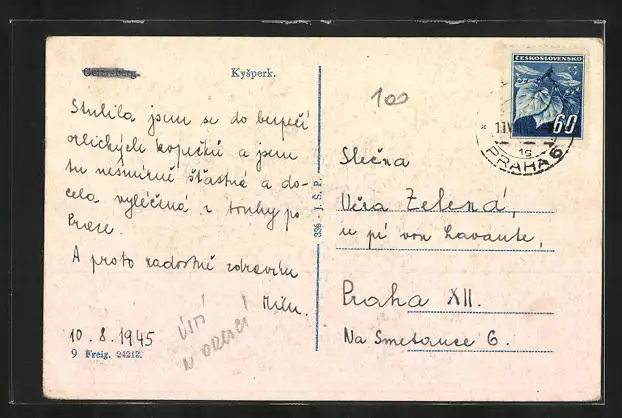 Geiersberg.
Kyšperk.
Stulila jsem se do bezpečí
orlických kopečků a jsem
tu nesmírně šťastná a do-
cela vyléčená z touhy po
Praze.
A proto radostně zdravím
10.8.1945
ÚSTÍ
N ORLICÍ
9 Freig. 24212.
336 - J. Š. P.
100
ČESKOSLOVENSKO
60
PRAHA 6
Slečna
Věra Zelená,
u pí von Lavante,
Praha XII.
Na Smetance 6.